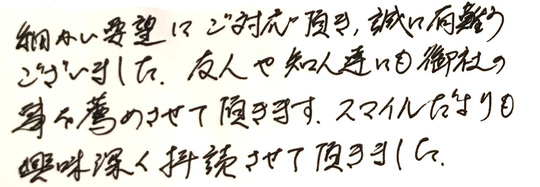 細かい要望にご対応頂き、誠に有難う
ございました。友人や知人達にも御社の
事を薦めさせて頂きます。スマイルだよりも
興味深く拝読させて頂きました。